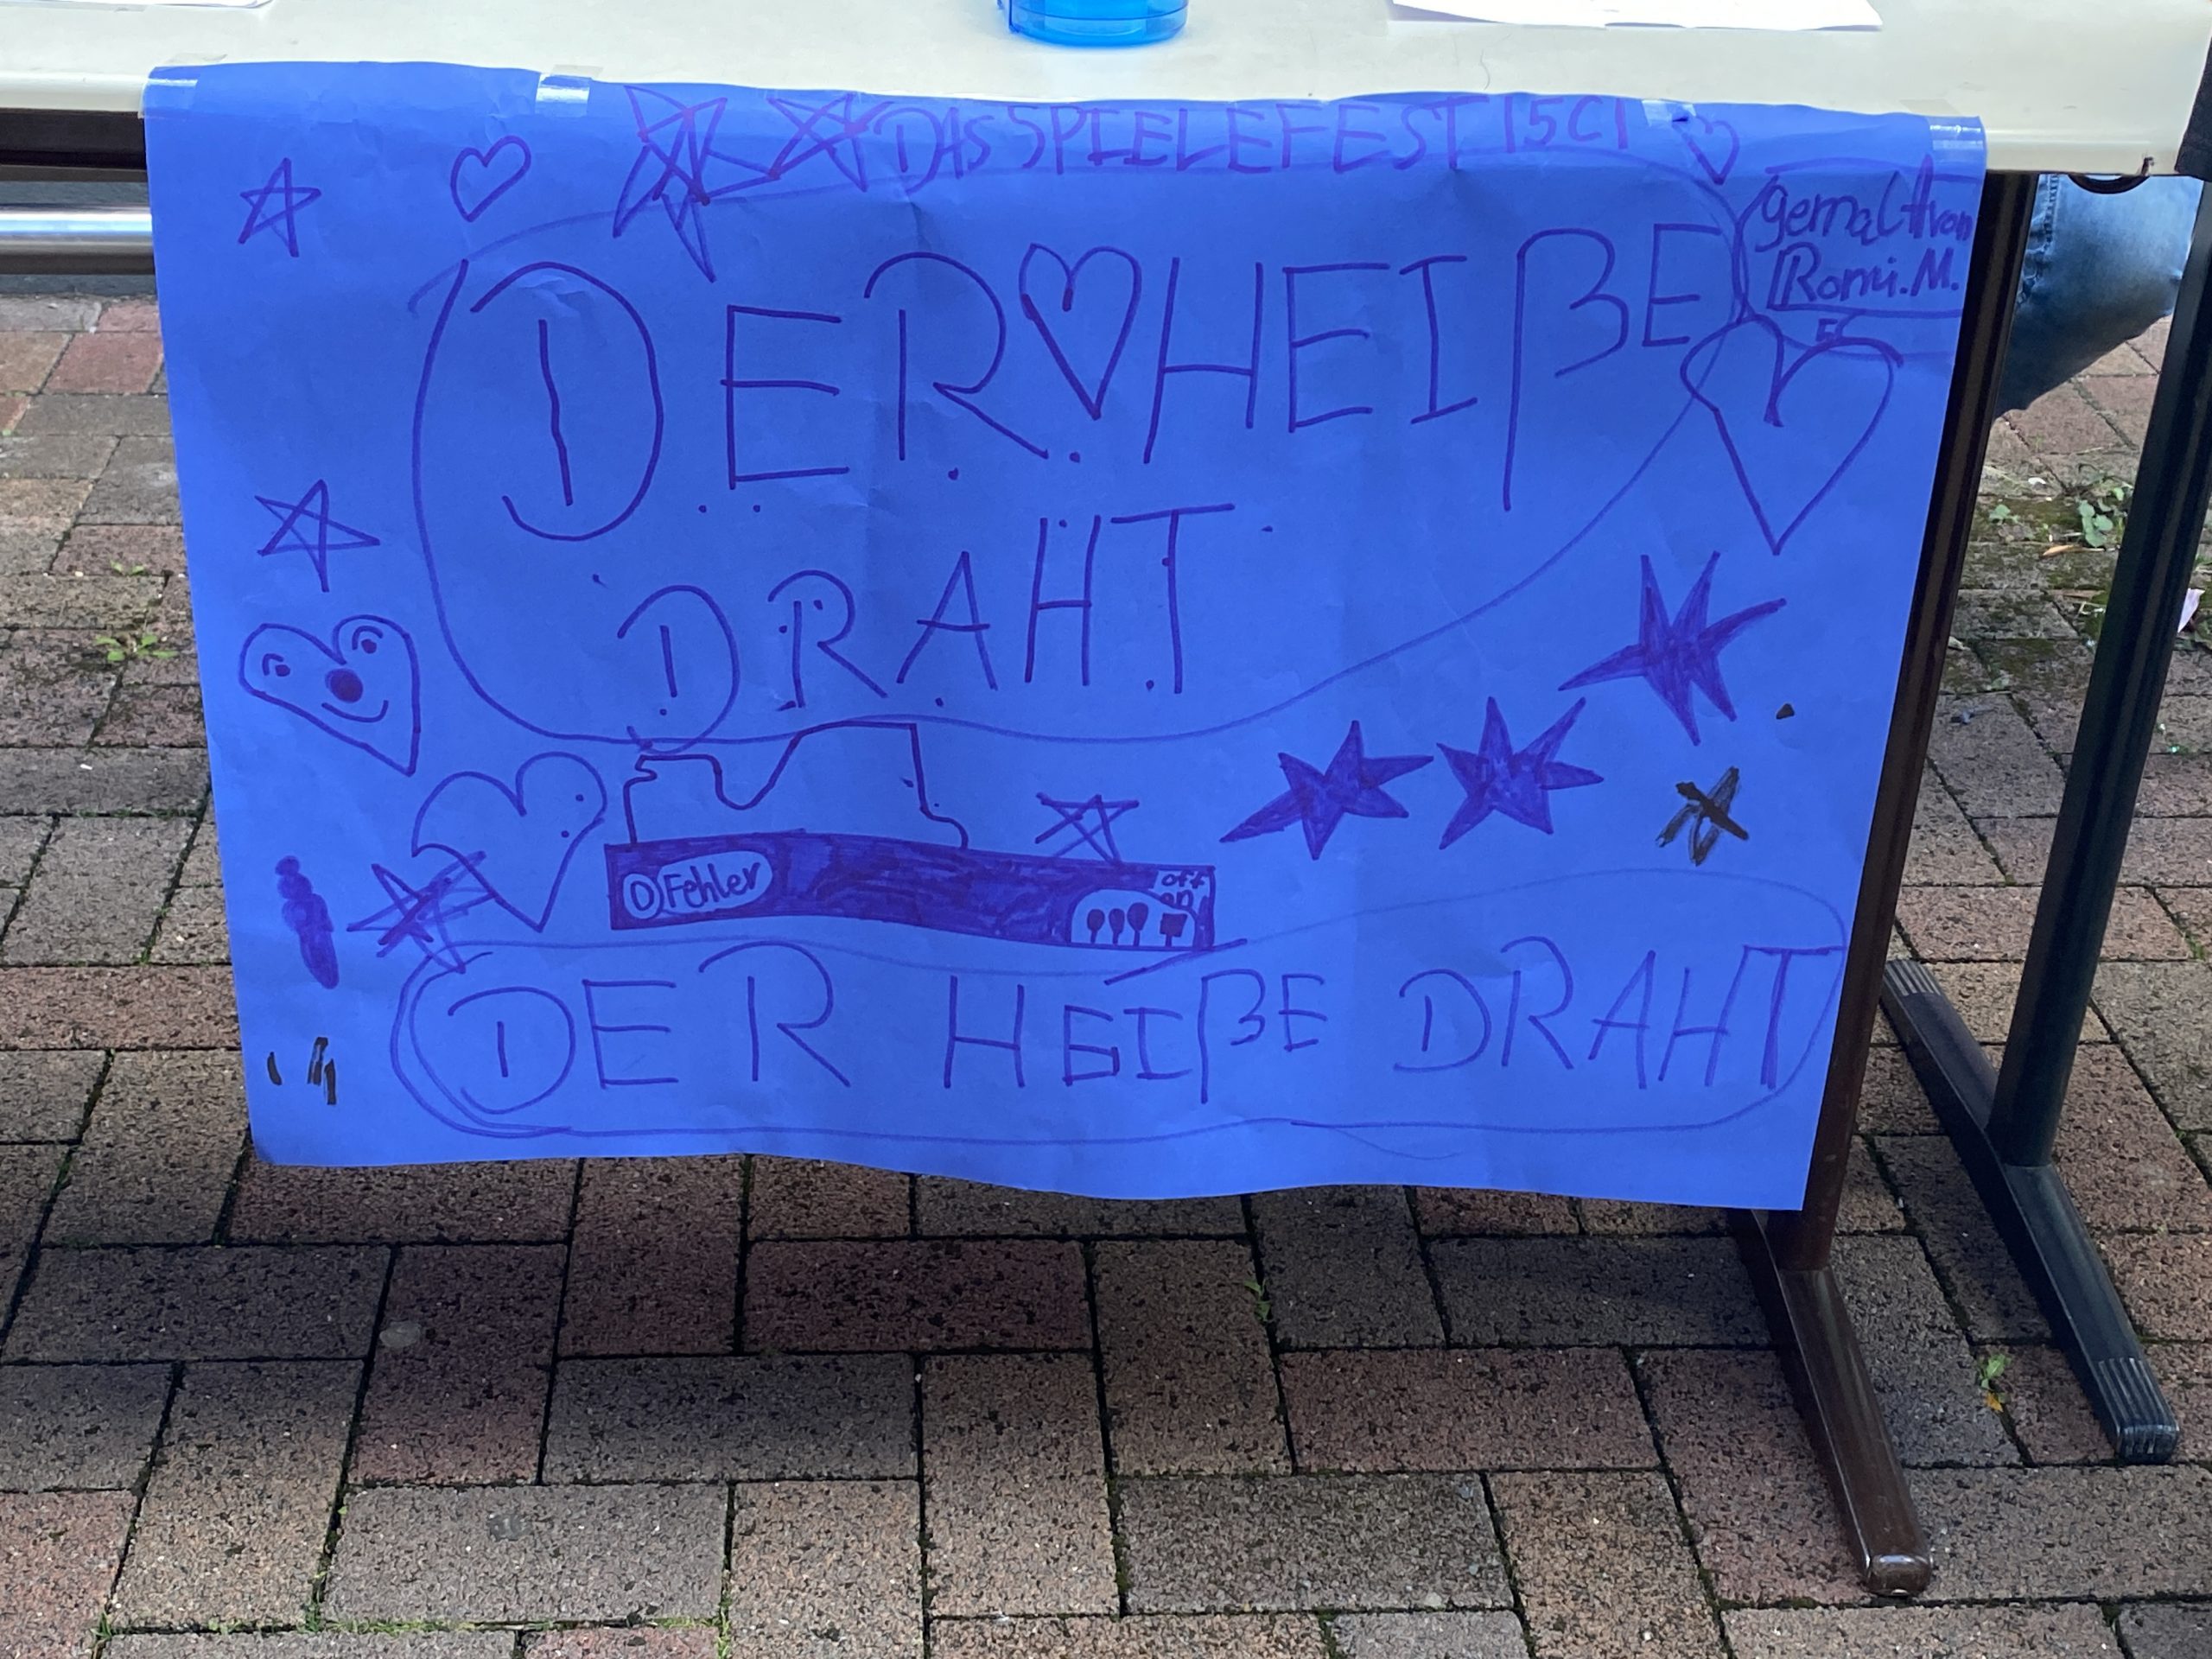 DAS SPIELEFEST 5C
gemalt von
Romi.M.
DER HEIßE
DRAHT
Fehler
off
on
DER HEIßE DRAHT